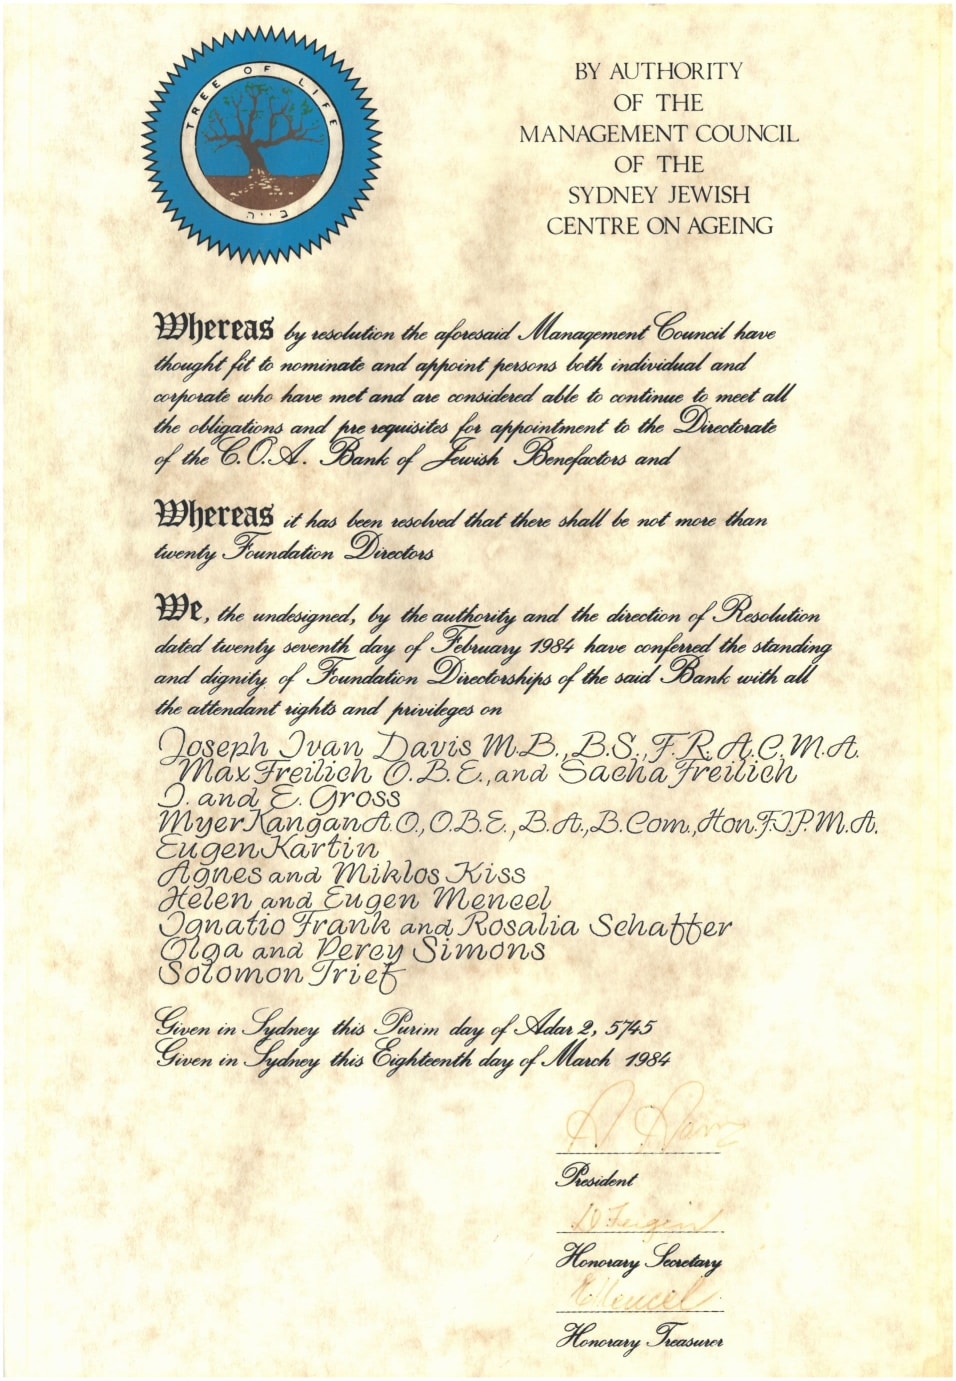 TREE OF LIFE
BY AUTHORITY
OF THE
MANAGEMENT COUNCIL
OF THE
SYDNEY JEWISH
CENTRE ON AGEING
Whereas by resolution the aforesaid Management Council have
thought fit to nominate and appoint persons both individual and
corporate who have met and are considered able to continue to meet all
the obligations and pre requisites for appointment to the Directorate
of the C.O.A. Bank of Jewish Benefactors and
Whereas it has been resolved that there shall be not more than
twenty Foundation Directors
We, the undesigned, by the authority and the direction of Resolution
dated twenty seventh day of February 1984 have conferred the standing
and dignity of Foundation Directorships of the said Bank with all
the attendant rights and privileges on
Joseph Ivan Davis M.B., B.S., F.R.A.C.M.A.
Max Freilich O.B.E., and Sacha Freilich
I. and E. Gross
Myer Kangan A.O., O.B.E., B.A., B.Com., Hon.F.I.P.M.A.
Eugen Kartin
Agnes and Miklos Kiss
Helen and Eugen Mencel
Ignatio Frank and Rosalia Schaffer
Olga and Percy Simons
Solomon Trief
Given in Sydney this Purim day of Adar 2, 5745
Given in Sydney this Eighteenth day of March 1984
President
Honorary Secretary
E Mencel
Honorary Treasurer